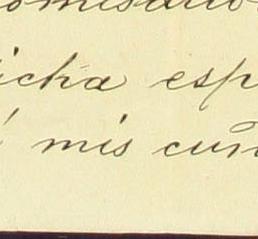 omisario
icha esp
mis cuñ